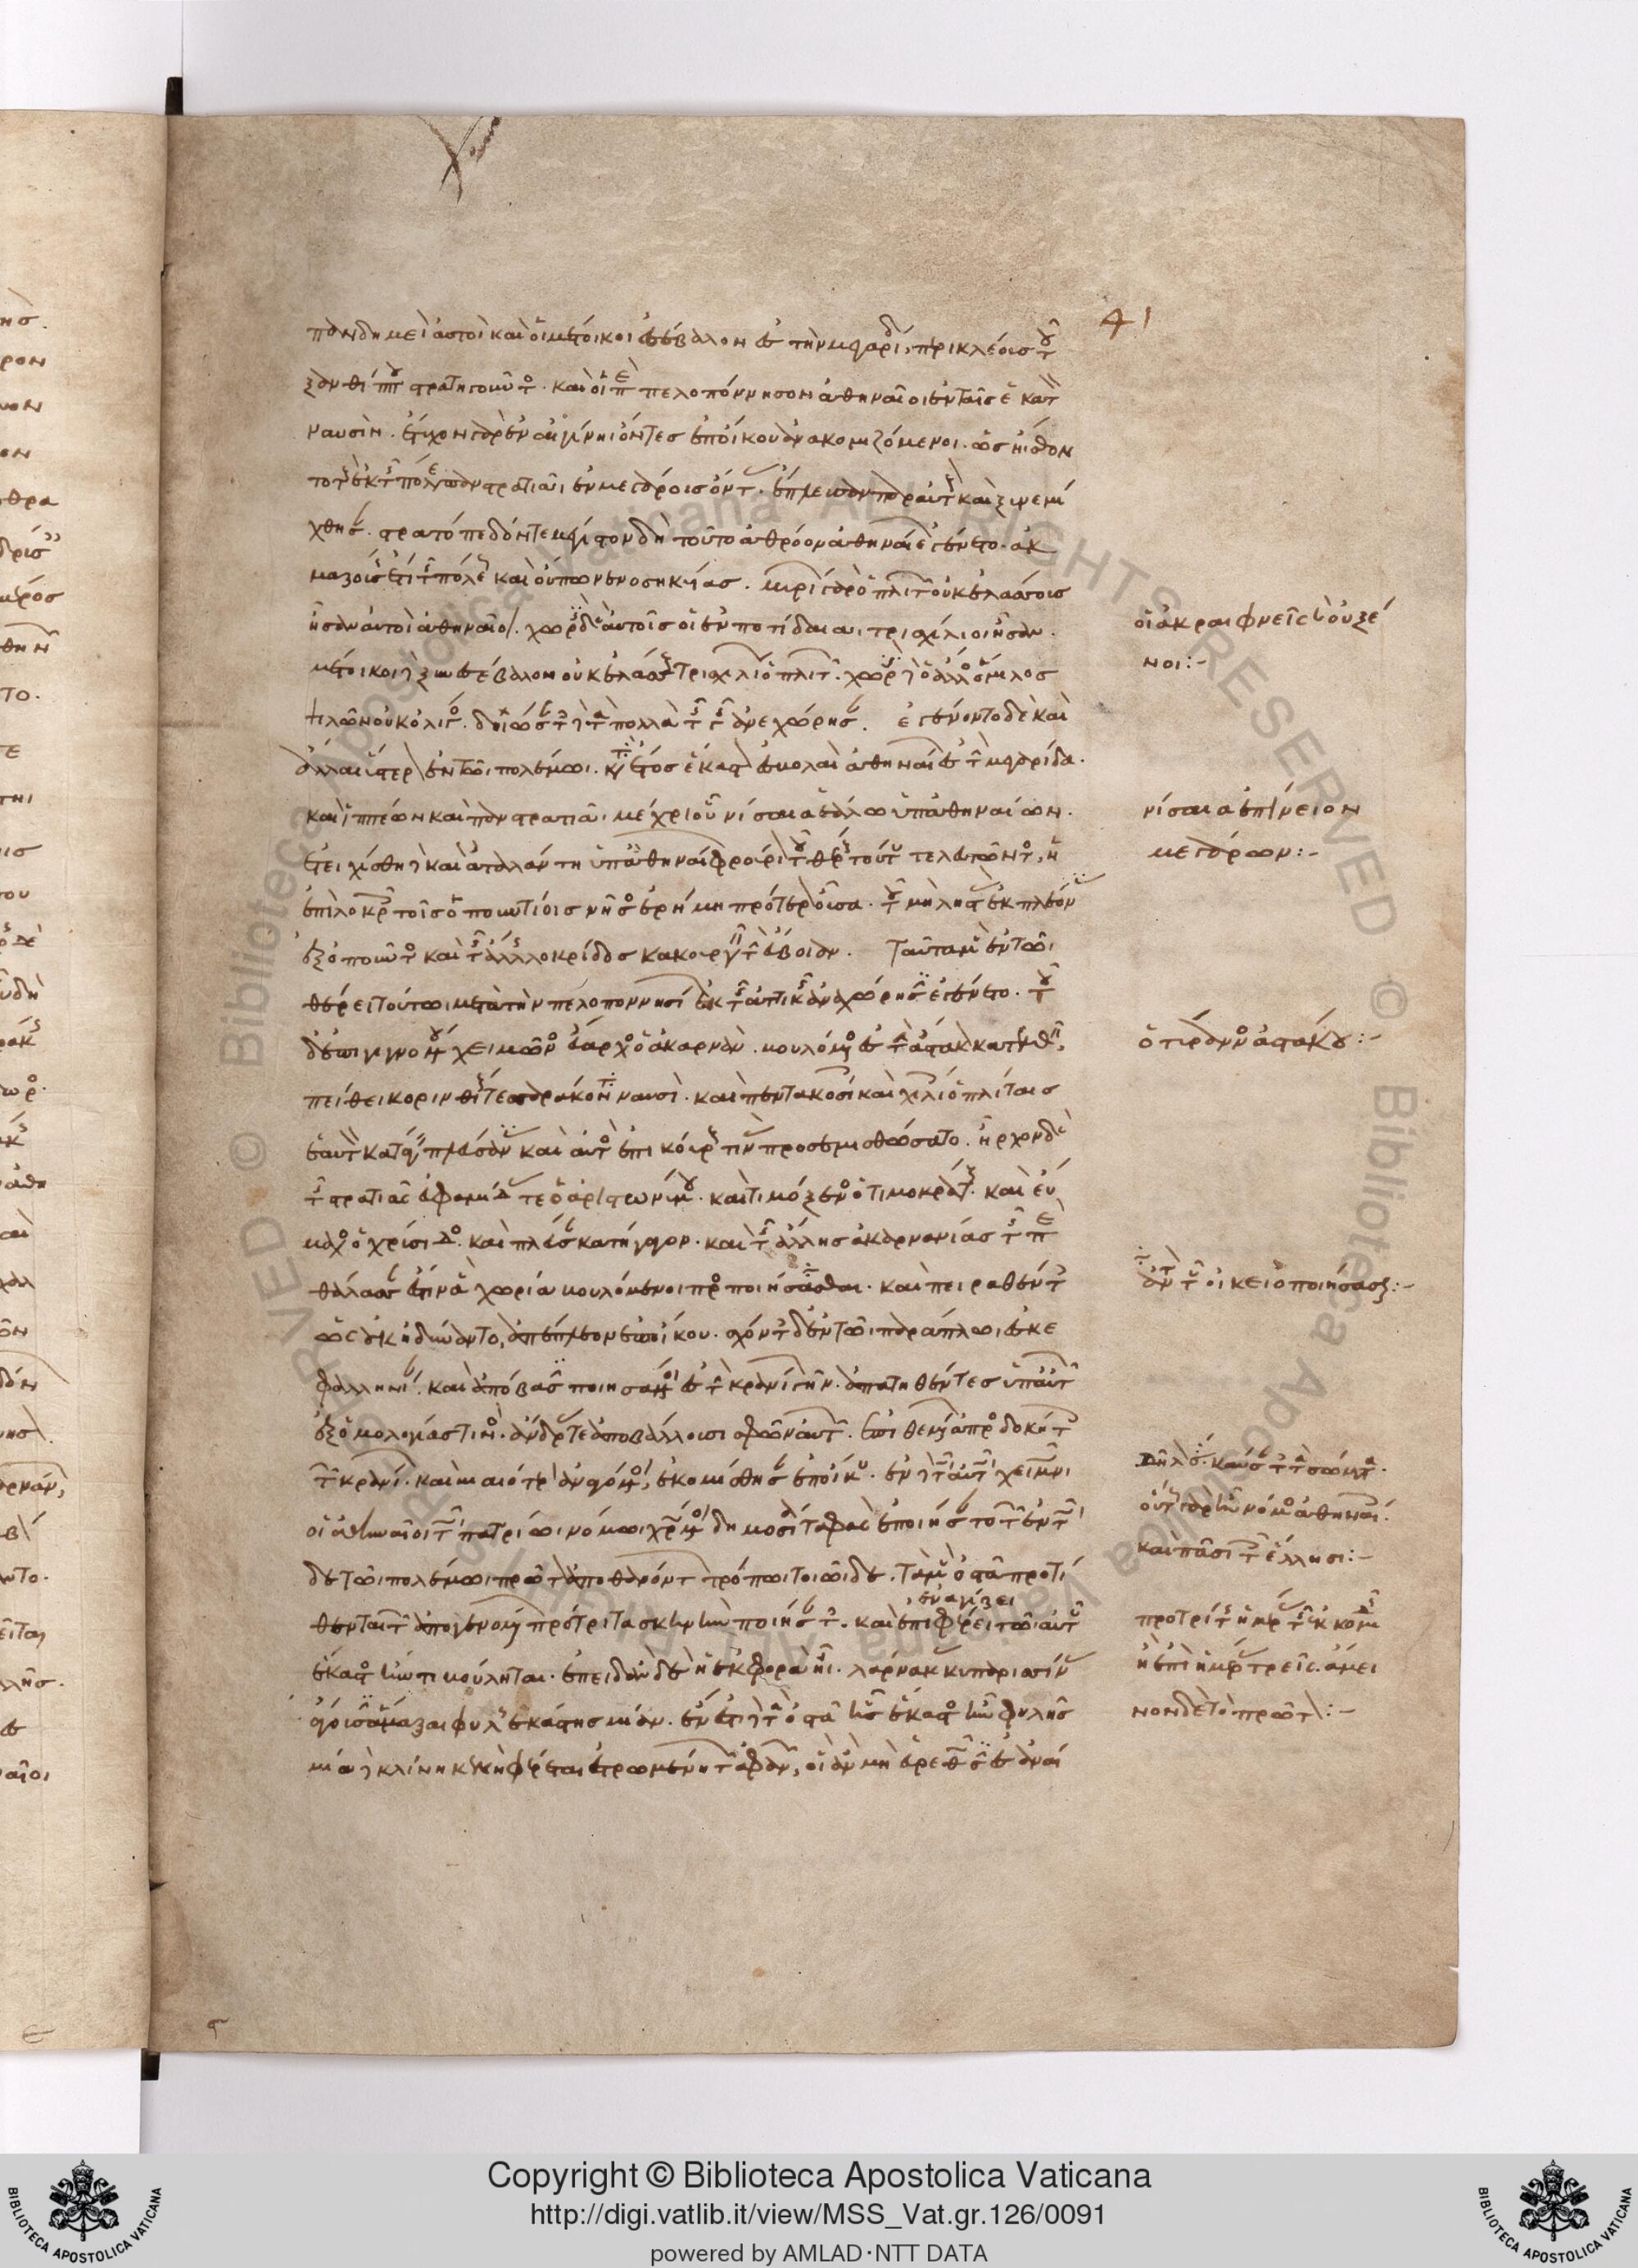 πανδημεὶ ἀστοὶ καὶ οἱ μέτοικοι ἐσέβαλον ἐς τὴν μεγαρίδα, περικλέους τοῦ
ξανθίππου στρατηγοῦντος. καὶ οἱ περὶ πελοπόννησον ἀθηναῖοι ἐν ταῖς ἑκατὸν
ναυσὶν. ἔτυχον γὰρ ἐν αἰγίνηι ὄντες ἐπ' οἴκου ἀνακομιζόμενοι. ὡς ἤισθον
τοὺς ἐκ τῆς πόλεως πανστρατιᾶι ἐν μεγάροις ὄντας. ἔπλευσαν παρ' αὐτοὺς καὶ ξυνεμί
χθησαν. στρατόπεδόν τε μέγιστον δὴ τοῦτο ἀθρόον ἀθηναίων ἐγένετο. ἀκ
μαζούσης ἔτι τῆς πόλεως καὶ οὔπω νενοσηκυίας. μυρίων γὰρ ὁπλιτῶν οὐκ ἐλάσσους
ἦσαν αὐτοὶ ἀθηναῖοι. χωρὶς δὲ αὐτοῖς οἱ ἐν ποτιδαίαι, τρισχίλιοι ἦσαν.
μέτοικοι δὲ ξυνεσέβαλον οὐκ ἐλάσσους τρισχιλίων ὁπλιτῶν. χωρὶς δὲ ὁ ἄλλος ὅμιλος
ψιλῶν οὐκ ὀλίγος. δηιώσαντες δὲ τὰ πολλὰ τῆς γῆς ἀνεχώρησαν. ἐγένοντο δὲ καὶ
ἄλλαι ὕστερον ἐν τῶι πολέμωι. κατὰ ἔτος ἕκαστον ἐσβολαὶ ἀθηναίων ἐς τὴν μεγαρίδα.
καὶ ἱππέων καὶ πανστρατιᾶι, μέχρι οὗ νίσαια ἑάλω ὑπ' ἀθηναίων.
ἐτειχίσθη δὲ καὶ ἀταλάντη ὑπὸ ἀθηναίων φρούριον τοῦ θέρους τούτου τελευτῶντος, ἡ
ἐπὶ λοκροῖς τοῖς ὀπουντίοις νῆσος ἐρήμη πρότερον οὖσα. τοῦ μὴ ληιστὰς ἐκπλέοντας
ἐξ ὀποῦντος καὶ τῆς ἄλλης λοκρίδος κακουργεῖν τὴν εὔβοιαν. Ταῦτα μὲν ἐν τῶι
θέρει τούτωι μετὰ τὴν πελοποννησίων ἐκ τῆς ἀττικῆς ἀναχώρησιν ἐγένετο. τοῦ
δ' ἐπιγιγνομένου χειμῶνος εὔαρχος ὁ ἀκαρνὰν. βουλόμενος ἐς τὴν ἀστακὸν κατελθεῖν,
πείθει κορινθίους τεσσαράκοντα ναυσὶ. καὶ πεντακοσίοις καὶ χιλίοις ὁπλίταις
ἑαυτὸν κατάγειν πλεύσαντας καὶ αὐτὸς ἐπικούρους τινὰς προσεμισθώσατο. ἦρχον δὲ
τῆς στρατιᾶς εὐφαμίδας τε ὁ ἀριστωνύμου. καὶ τιμόξενος ὁ τιμοκράτους. καὶ εὔ
μαχος ὁ χρύσιδος. καὶ πλεύσαντες κατήγαγον. καὶ τῆς ἄλλης ἀκαρνανίας τῆς περὶ
θάλασσαν ἔστιν ἃ χωρία βουλόμενοι προσποιήσασθαι. καὶ πειραθέντες
ὡς οὐκ ἠδύναντο, ἀπέπλεον ἐπ' οἴκου. σχόντες δ' ἐν τῶι παράπλωι ἐς κε
φαλληνίαν. καὶ ἀπόβασιν ποιησάμενοι ἐς τὴν κρανίων γῆν. ἀπατηθέντες ὑπ' αὐτῶν
ἐξ ὁμολογίας τινός. ἄνδρας τε ἀποβάλλουσι σφῶν αὐτῶν. ἐπιθεμένων ἀπροσδοκήτως
τῶν κρανίων. καὶ βιαιότερον ἀναγόμενοι, ἐκομίσθησαν ἐπ' οἴκου. ἐν δὲ τῶι αὐτῶι χειμῶνι
οἱ ἀθηναῖοι τῶι πατρίωι νόμωι χρώμενοι δημοσίαι ταφὰς ἐποιήσαντο τῶν ἐν τῶι
δε τῶι πολέμωι πρώτων ἀποθανόντων τρόπωι τοιῶιδε. Τὰ μὲν ὀστᾶ προτί
θενται τῶν ἀπογενομένων πρότριτα σκηνὴν ποιήσαντες. καὶ ἐπιφέρει τῶι αὐτοῦ
ἐναγίζει
ἕκαστος ἤν τι βούληται. ἐπειδὰν δὲ ἡ ἐκφορὰ ἦι. λάρνακας κυπαρισσίνας
ἄγουσιν ἅμαξαι φυλῆς ἑκάστης μίαν. ἔνεστι δὲ τὰ ὀστᾶ ἧς ἕκαστος ἦν φυλῆς
μία δὲ κλίνη κενὴ φέρεται ἐστρωμένη τῶν ἀφανῶν, οἳ ἂν μὴ εὑρεθῶσιν ἐς ἀναί
41
οἱ ἀκραιφνεῖς οὐ ξέ
νοι:-
νίσαια ἐπίνειον
μεγάρων:-
ὁ τύραννος ἀστακοῦ:-
ἀντὶ τοῦ οἰκειοποιήσασθαι:-
δηλονότι καύσαντες τὰ σώματα.
οὕτως γὰρ ἦν νόμος ἀθηναίοις.
καὶ πᾶσι τοῖς ἕλλησι:-
πρὸ τρίτης ἡμέρας τῆς ἐκκομιδῆς
ἢ ἐπὶ ἡμέρας τρεῖς. ἄμει
νον δὲ τὸ πρῶτον:-
Copyright © Biblioteca Apostolica Vaticana
http://digi.vatlib.it/view/MSS_Vat.gr.126/0091
powered by AMLAD·NTT DATA